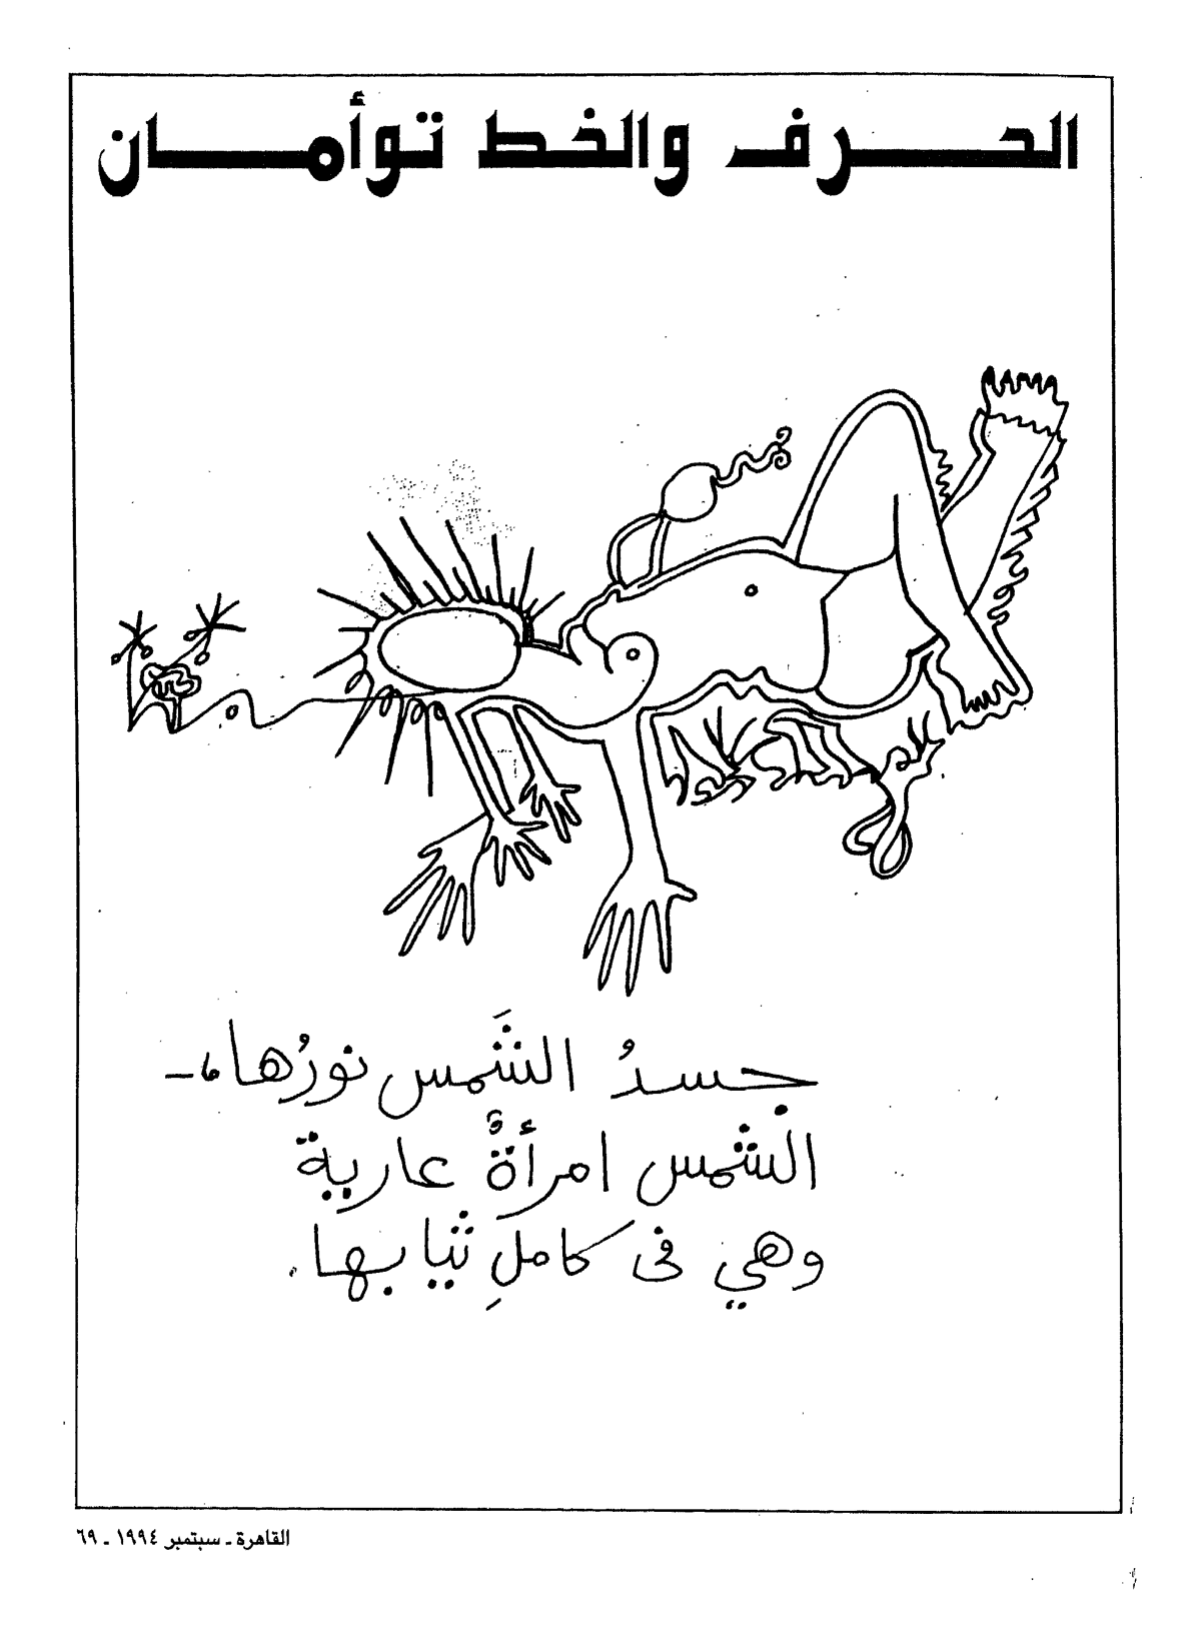 الحرف والخط توأمان
جسدُ الشَمس نورُها،-
الشمس امرأةٌ عارية
وهي فى كاملِ ثيابها.
القاهرة ـ سبتمبر ١٩٩٤ ـ ٦٩